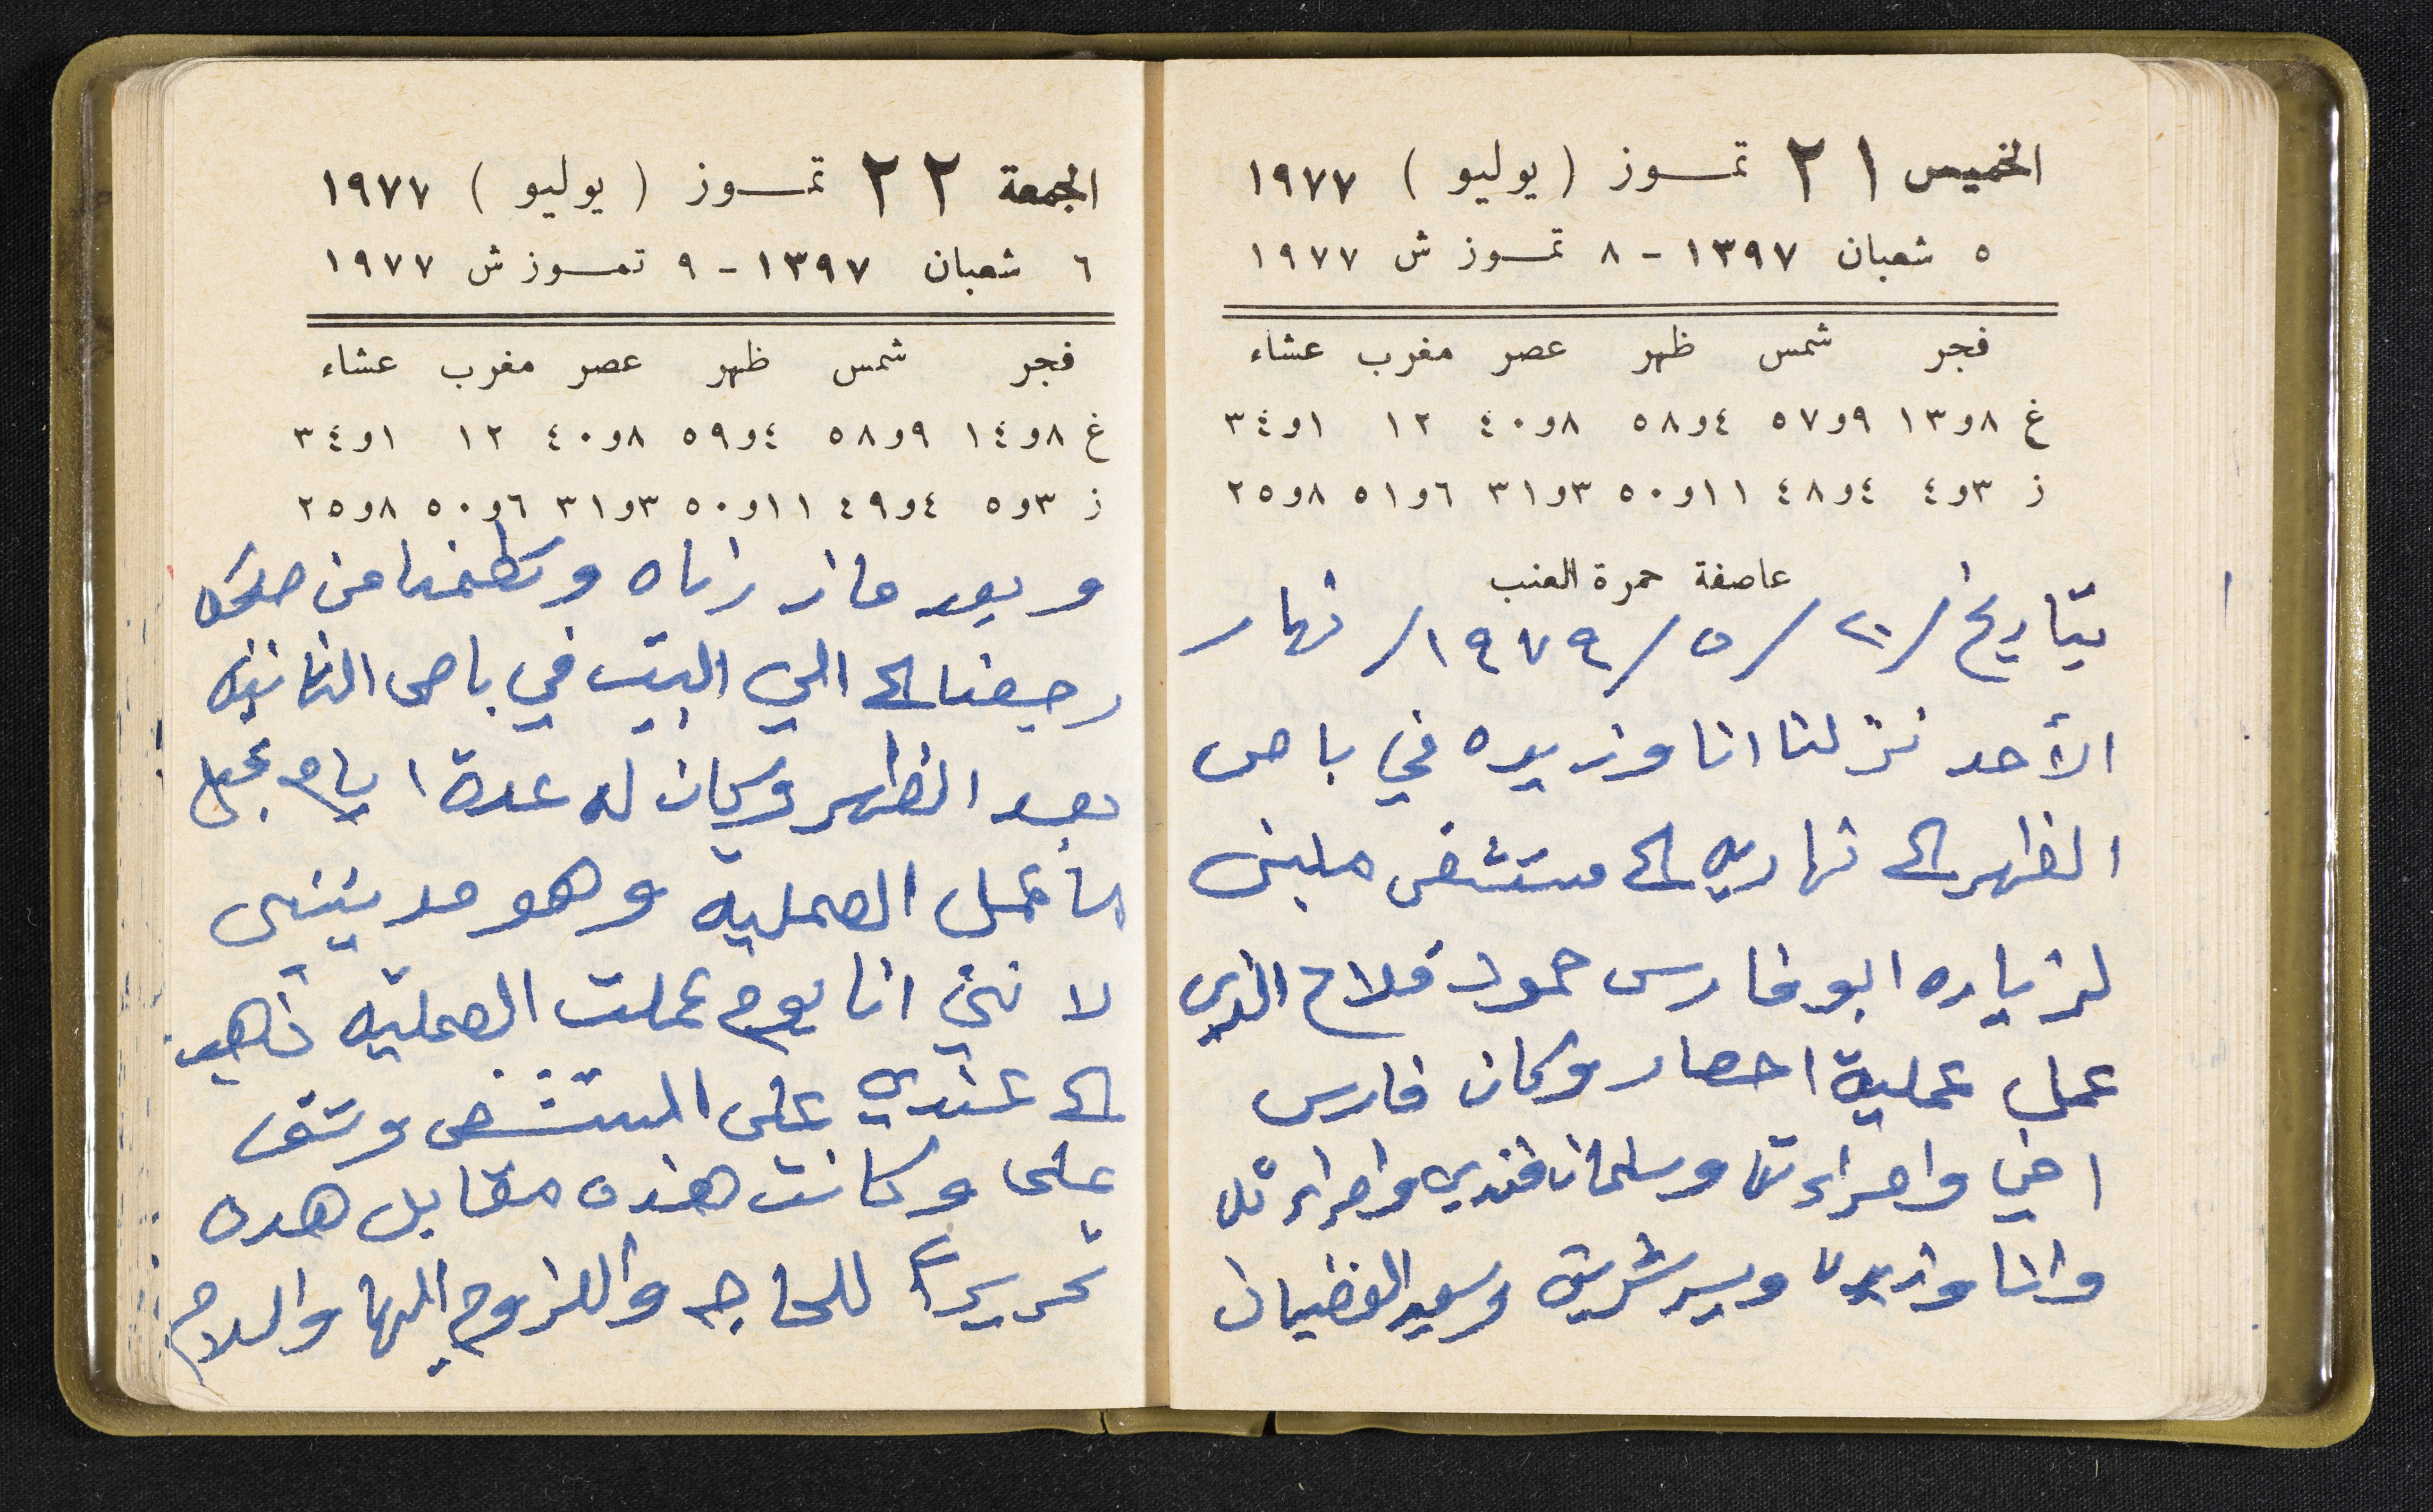 الخميس ٢١ تمــوز ( يوليو ) ١٩٧٧
٥ شعبان ١٣٩٧ - ٨ تمــوز ش ١٩٧٧
فجر شمس ظهر عصر مغرب عشاء
غ ٨و١٣ ٩و٥٧ ٤و٥٨ ٨و٤٠ ١٢ ١و٣٤
ز ٣و٤ ٤و٤٨ ١١و٥٠ ٣و٣١ ٦و٥١ ٨و٢٥
عاصفة حمرة العنب
بتاريخ/٢٠/٥/١٩٧٩/ نهار
الأحد نزلنا انا وزيده في باص
الظهر الى نهاريه الى مستشفى
لزياره ابو فارس حمود فلاح الذي
عمل عملية احصار وكان فارس
اخي وامراءته وسلمان فندي وامراءته
وانا وزيده ويسر شريق وسعيد الغضبان
الجمعة ٢٢ تمــوز ( يوليو ) ١٩٧٧
٦ شعبان ١٣٩٧ - ٩ تمــوز ش ١٩٧٧
فجر شمس ظهر عصر مغرب عشاء
غ ٨و١٤ ٩و٥٨ ٤و٥٩ ٨و٤٠ ١٢ ١و٣٤
ز ٣و٥ ٤و٤٩ ١١و٥٠ ٣و٣١ ٦و٥٠ ٨و٢٥
وبعد ما زرناه وتطمنا من
رجعنا الى الي البيت في باص الثانيه
بعد الظهر وكان له عدة ايام
عمل العمليه وهو مدينني
لا نني انا يوم عملت العمليه
الى عندي على المستشفى وشق
على وكانت هذه مقابل هده
تحريرا للحاجه واللزوم اليها والسلام